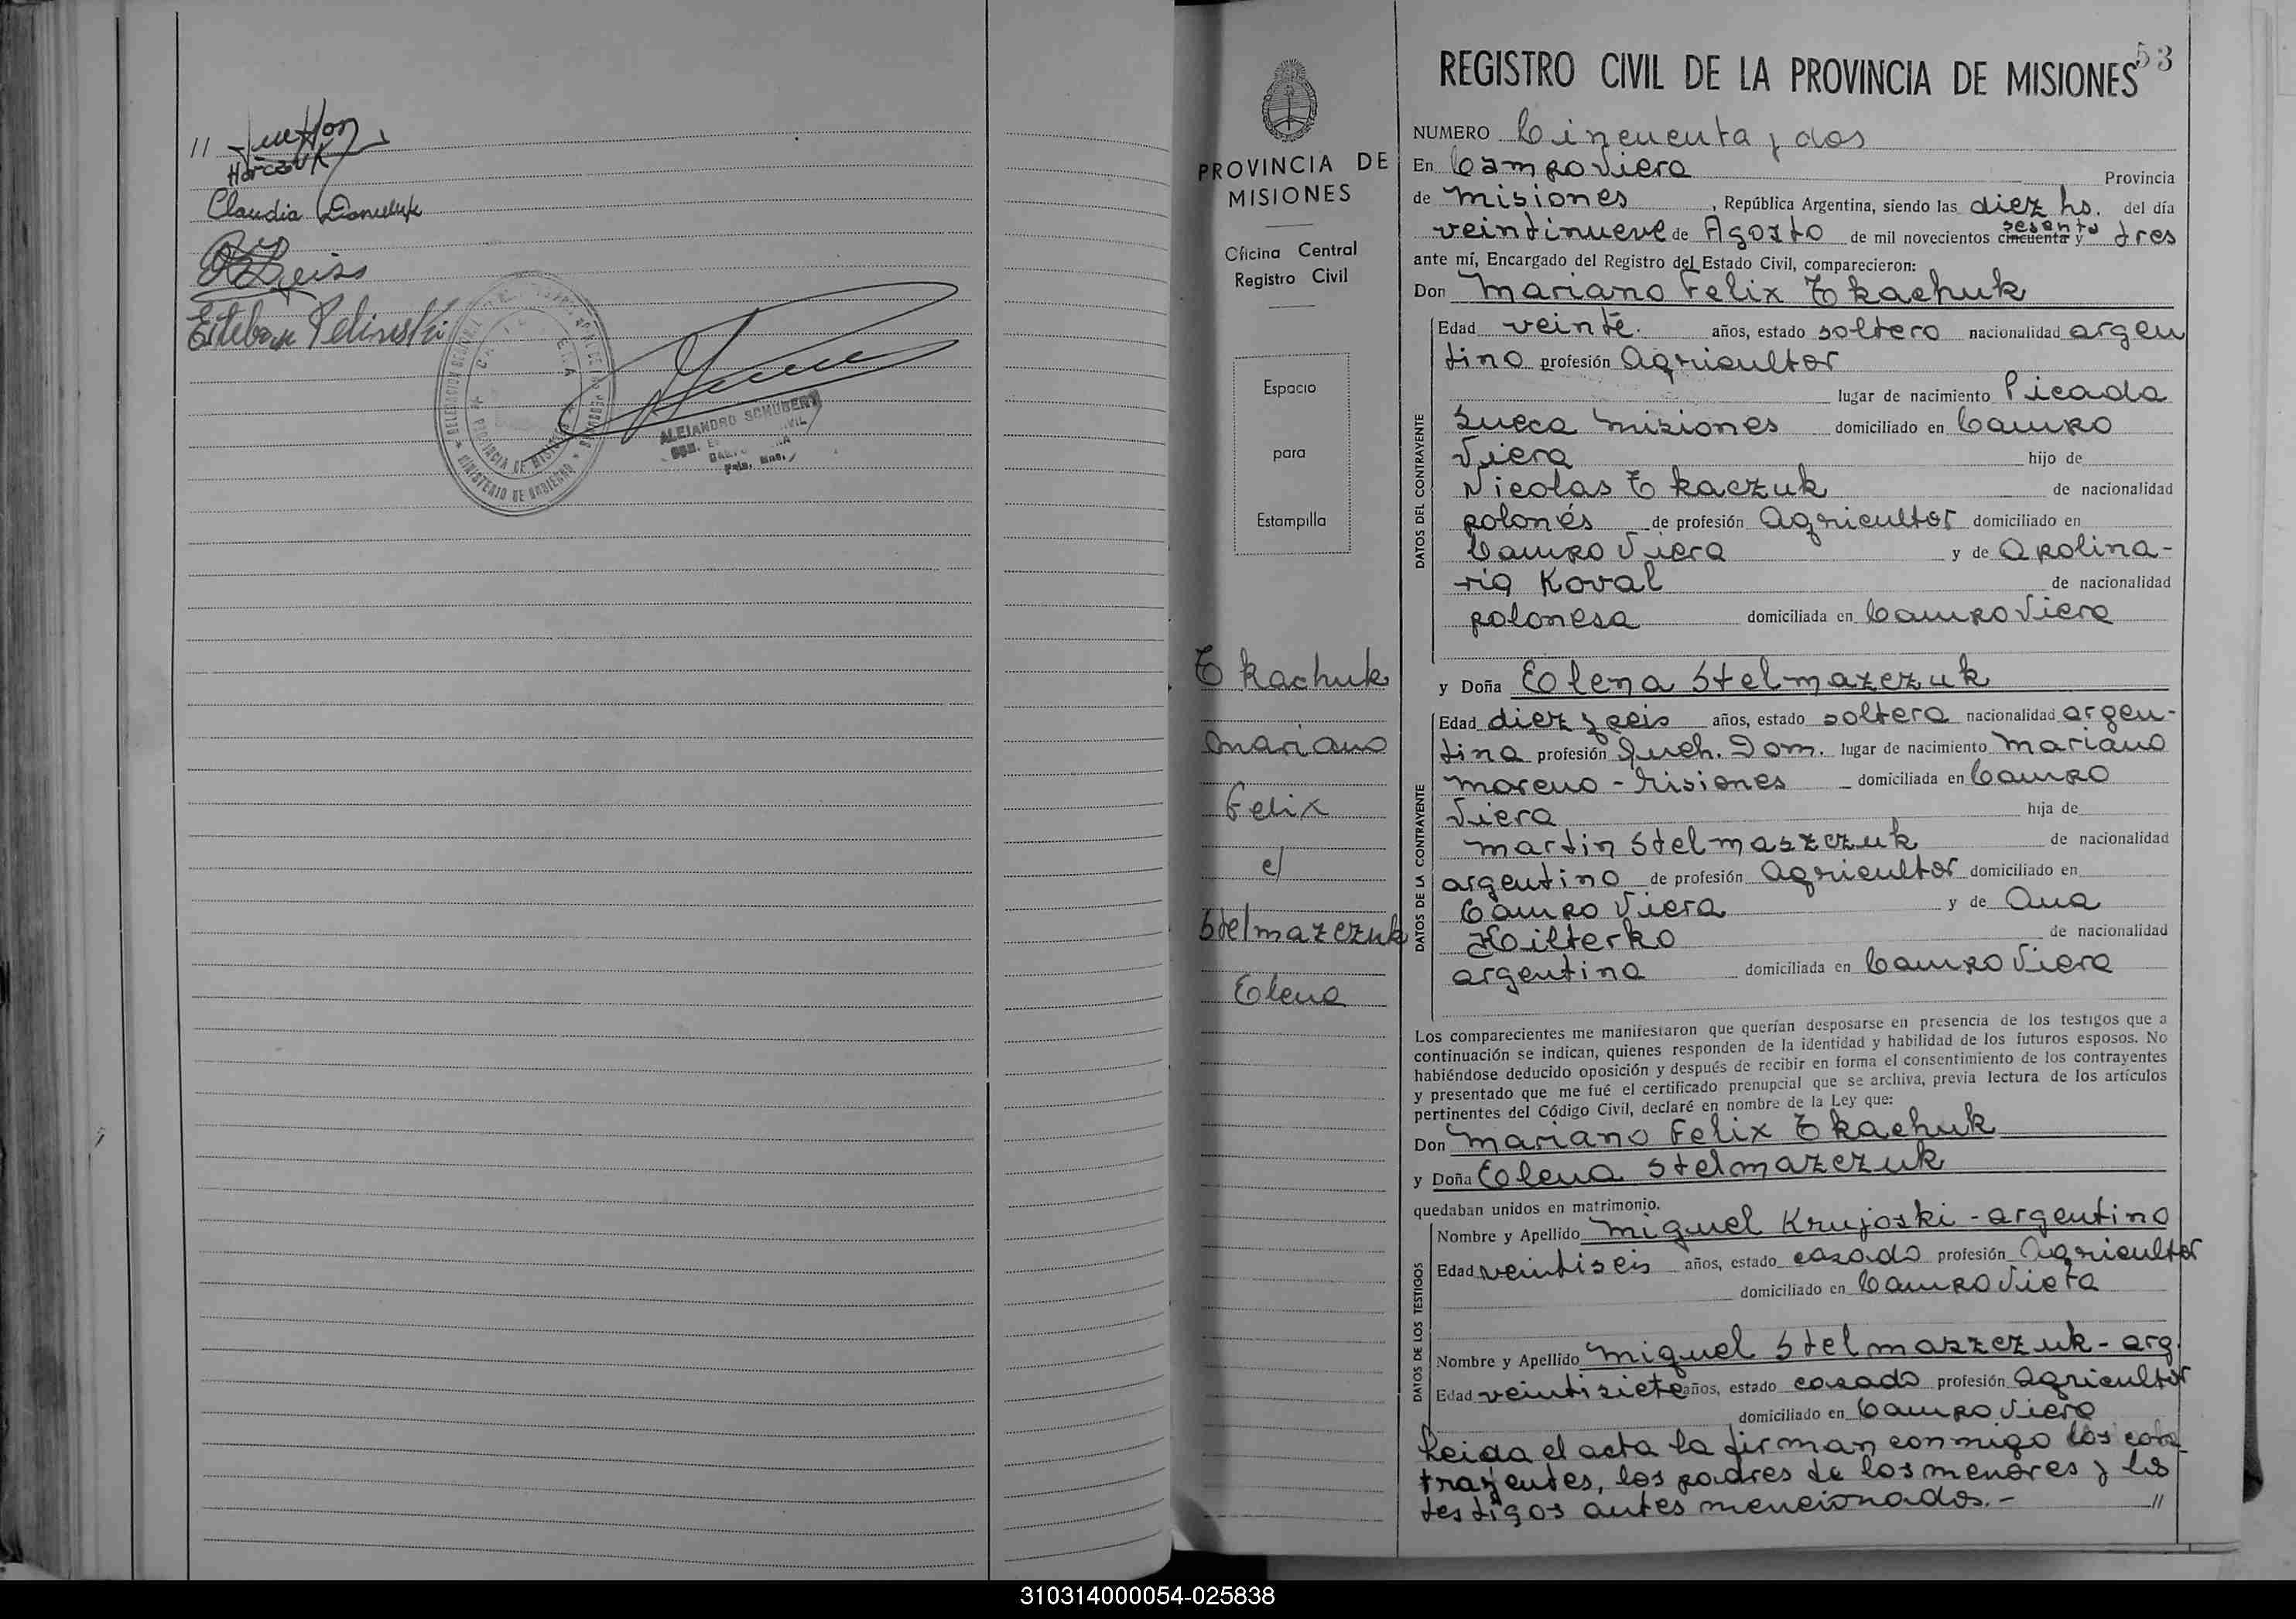 //
Horczuk
Claudia Daneluk
Esteban Pelinski
DELEGACION
MINISTERIO DE GOBIERNO
PROVINCIA DE MISIONES
ALEJANDRO SCHUBERT
53
PROVINCIA DE
MISIONES
Oficina Central
Registro Civil
Espacio
para
Estampilla
Tkachuk
Mariano
Felix
c/
Stelmazczuk
Elena
REGISTRO CIVIL DE LA PROVINCIA DE MISIONES
NUMERO Cincuenta y dos
En Campo Viera Provincia
de Misiones, República Argentina, siendo las diez hs. del día
veintinueve de Agosto de mil novecientos cincuenta y sesenta tres
ante mí, Encargado del Registro del Estado Civil, comparecieron:
Don Mariano Felix Tkachuk
DATOS DEL CONTRAYENTE
Edad veinte. años, estado soltero nacionalidad argen
tino profesión Agricultor
lugar de nacimiento Picada
Sueca Misiones domiciliado en Campo
Viera hijo de
Nicolas Tkaczuk de nacionalidad
polonés de profesión Agricultor domiciliado en
Campo Viera y de Apolina-
ria Koval de nacionalidad
polonesa domiciliada en Campo Viera
y Doña Elena Stelmazczuk
DATOS DE LA CONTRAYENTE
Edad diez y seis años, estado soltera nacionalidad argen-
tina profesión Queh. Dom. lugar de nacimiento Mariano
Moreno - Misiones domiciliada en Campo
Viera hija de
Martin Stelmaszczuk de nacionalidad
argentino de profesión Agricultor domiciliado en
Campo Viera y de Ana
Hoilterko de nacionalidad
argentina domiciliada en Campo Viera
Los comparecientes me manifestaron que querían desposarse en presencia de los testigos que a
continuación se indican, quienes responden de la identidad y habilidad de los futuros esposos. No
habiéndose deducido oposición y después de recibir en forma el consentimiento de los contrayentes
y presentado que me fué el certificado prenupcial que se archiva, previa lectura de los artículos
pertinentes del Código Civil, declaré en nombre de la Ley que:
Don Mariano Felix Tkachuk
y Doña Elena Stelmazczuk
quedaban unidos en matrimonio.
DATOS DE LOS TESTIGOS
Nombre y Apellido Miguel Krujoski - argentino
Edad veintiseis años, estado casado profesión Agricultor
domiciliado en Campo Viera
Nombre y Apellido Miguel Stelmaszczuk - arg.
Edad veintisiete años, estado casado profesión Agricultor
domiciliado en Campo Viera
Leida el acta la firman conmigo los con-
trayentes, los padres de los menores y los
testigos antes mencionados. - //
310314000054-025838